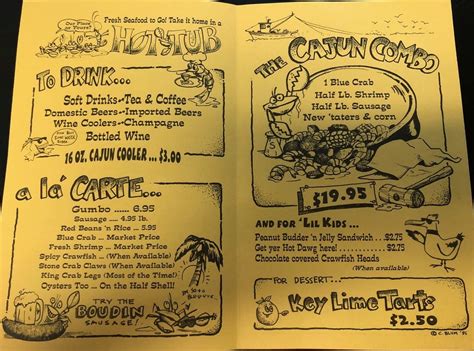 Our Place or Yours?
Fresh Seafood to Go! Take it home in a
HOT TUB
TO DRINK...
Soft Drinks - Tea & Coffee
Domestic Beers - Imported Beers
Wine Coolers - Champagne
Bottled Wine
16 OZ. CAJUN COOLER ... $3.00
a la' CARTE...
Gumbo ...... 6.95
Sausage .... 4.95 lb.
Red Beans 'n Rice .. 5.95
Blue Crab .. Market Price
Fresh Shrimp .. Market Price
Spicy Crawfish .. (When Available)
Stone Crab Claws (When Available)
King Crab Legs (Most of the Time!)
Oysters Too .. On the Half Shell!
TRY THE
BOUDIN
SAUSAGE!
THE CAJUN COMBO
1 Blue Crab
Half Lb. Shrimp
Half Lb. Sausage
New 'taters & corn
$19.95
AND FOR 'LIL KIDS...
Peanut Budder 'n Jelly Sandwich . . . $2.75
Get yer Hot Dawg here! . . . . . . . . $2.75
Chocolate covered Crawfish Heads
(When available)
FOR DESSERT...
Key Lime Tarts
$2.50